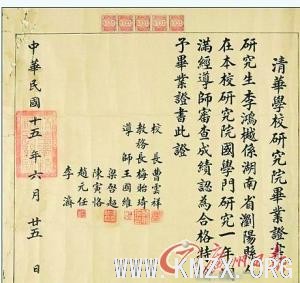 清華學校研究院畢業證書
研究生李鴻樾係湖南省瀏陽縣人
在本校研究院國學門研究一年期
滿經導師審查成績認為合格特
予畢業證書此證
校長曹雲祥
教務長梅貽琦
導師王國維
梁啓超
陳寅恪
趙元任
李濟
中華民國十五年六月廿五日
www.KMZX.ORG